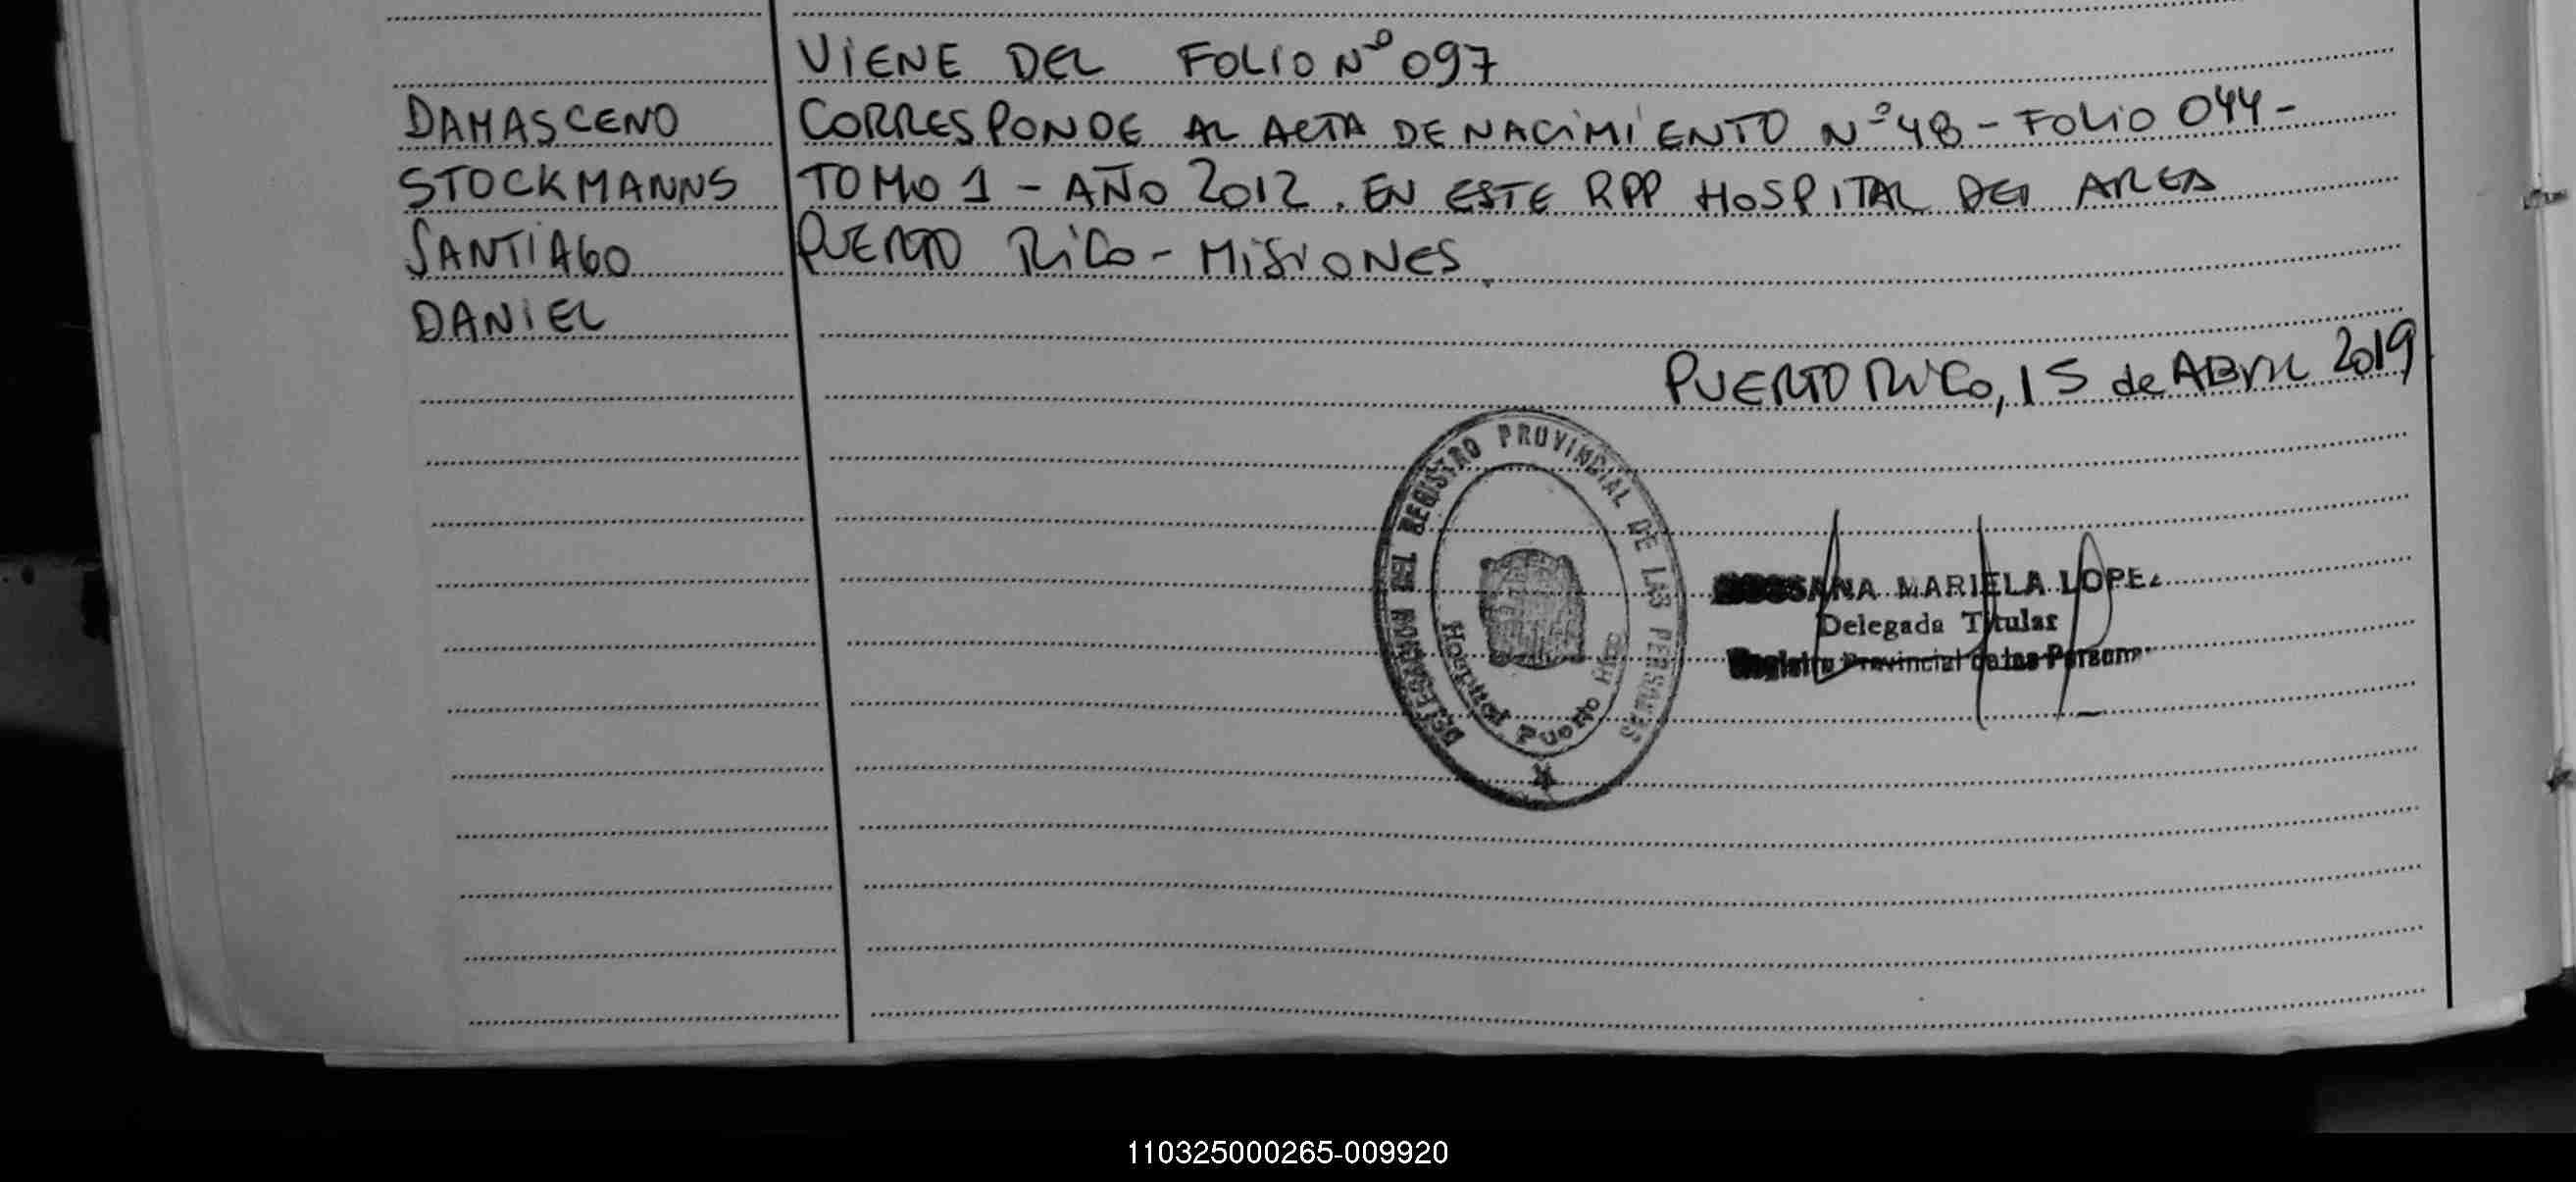 VIENE DEL FOLIO Nº 097
DAMASCENO CORRESPONDE AL ACTA DE NACIMIENTO Nº 48 - FOLIO 044 -
STOCKMANNS TOMO 1 - AÑO 2012. EN ESTE RPP HOSPITAL DEL AREA
SANTIAGO PUERTO RICO - MISIONES
DANIEL
PUERTO RICO, 15 de ABRIL 2019
DELEGACION DEL REGISTRO PROVINCIAL DE LAS PERSONAS
Hospital Puerto Rico
MARIELA LOPEZ
Delegada Titular
Registro Provincial de las Person
110325000265-009920